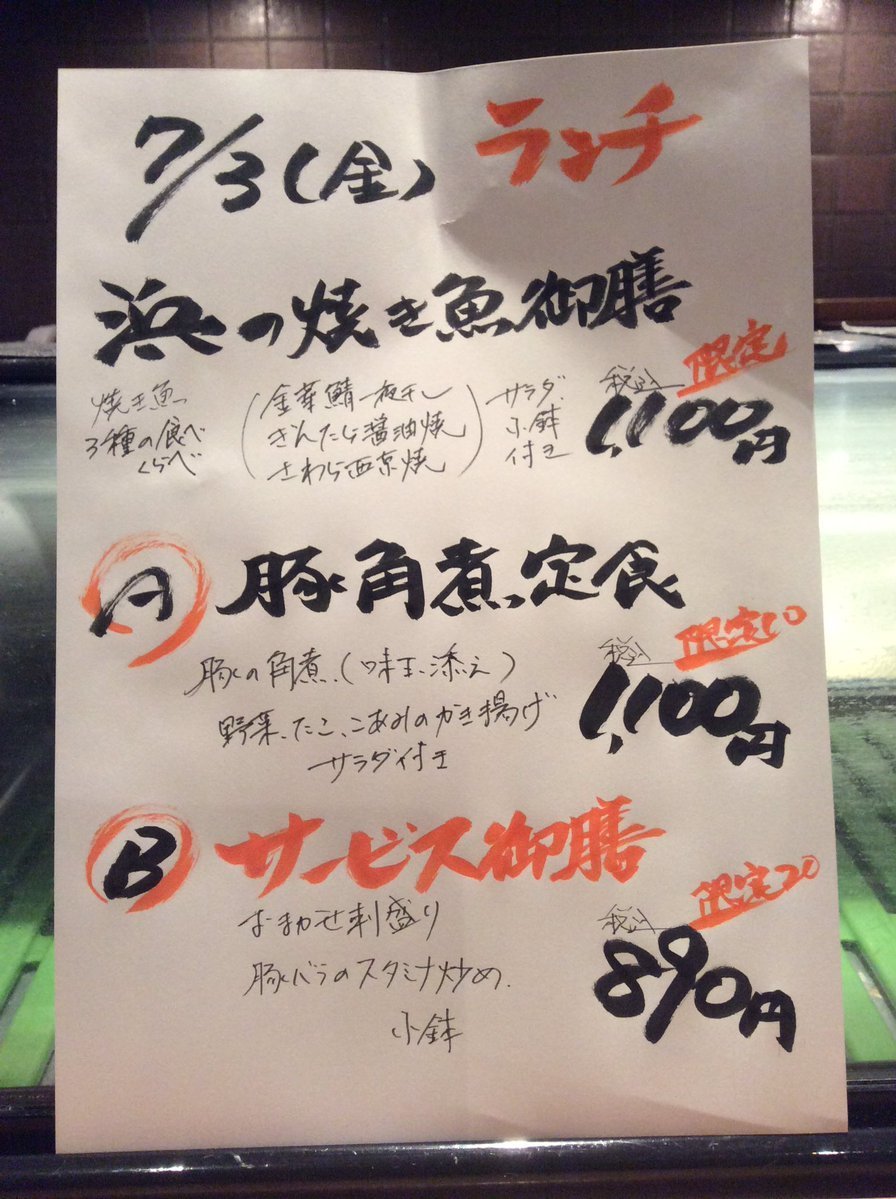 7/3(金) ランチ
浜の焼き魚御膳
限定
焼き魚
3種の食べ
くらべ
(金華鯖一夜干し
ぎんだら醤油焼
さわら西京焼)
サラダ、
小鉢
付き
税込
1,100円
A 豚角煮定食
限定10
豚の角煮、(味玉添え)
税込
1,100円
野菜、たこ、こあみのかき揚げ
サラダ付き
B サービス御膳
限定20
おまかせ刺盛り
税込
890円
豚バラのスタミナ炒め、
小鉢